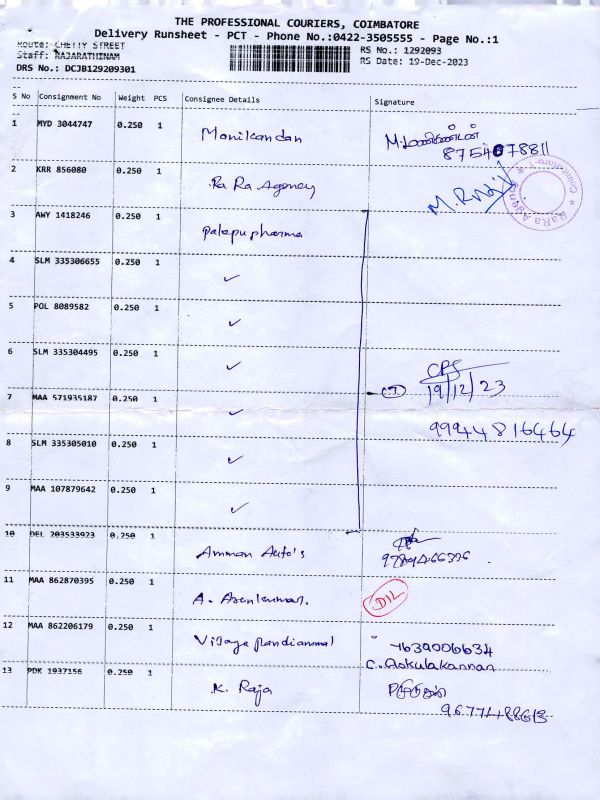 THE PROFESSIONAL COURIERS, COIMBATORE
Delivery Runsheet - PCT - Phone No.:0422-3505555 - Page No.:1
Route: CHETTY STREET
Staff: RAJARATHINAM
DRS No.: DCJB129209301
RS No.: 1292093
RS Date: 19-Dec-2023
S No Consignment No Weight PCS Consignee Details Signature
1 MYD 3044747 0.250 1 Manikandan M.மணிகண்டன்
8754078811
2 KRR 856080 0.250 1 Ra Ra Agency
3 AWY 1418246 0.250 1 Palepu pharma
4 SLM 335306655 0.250 1 ✓
5 POL 8089582 0.250 1 ✓
6 SLM 335304495 0.250 1 ✓ CPS
19/12/23
7 MAA 571935187 0.250 1 ✓ 7
99944816464
8 SLM 335305010 0.250 1 ✓
9 MAA 107879642 0.250 1 ✓
10 DEL 203533923 0.250 1 Amman Auto's
11 MAA 862870395 0.250 1 A. Arunkumar. D/L
12 MAA 862206179 0.250 1 Vijaya Pandiammal 7639006634
C. Gokulakannan
13 PDK 1937156 0.250 1 K. Raja
9677488613